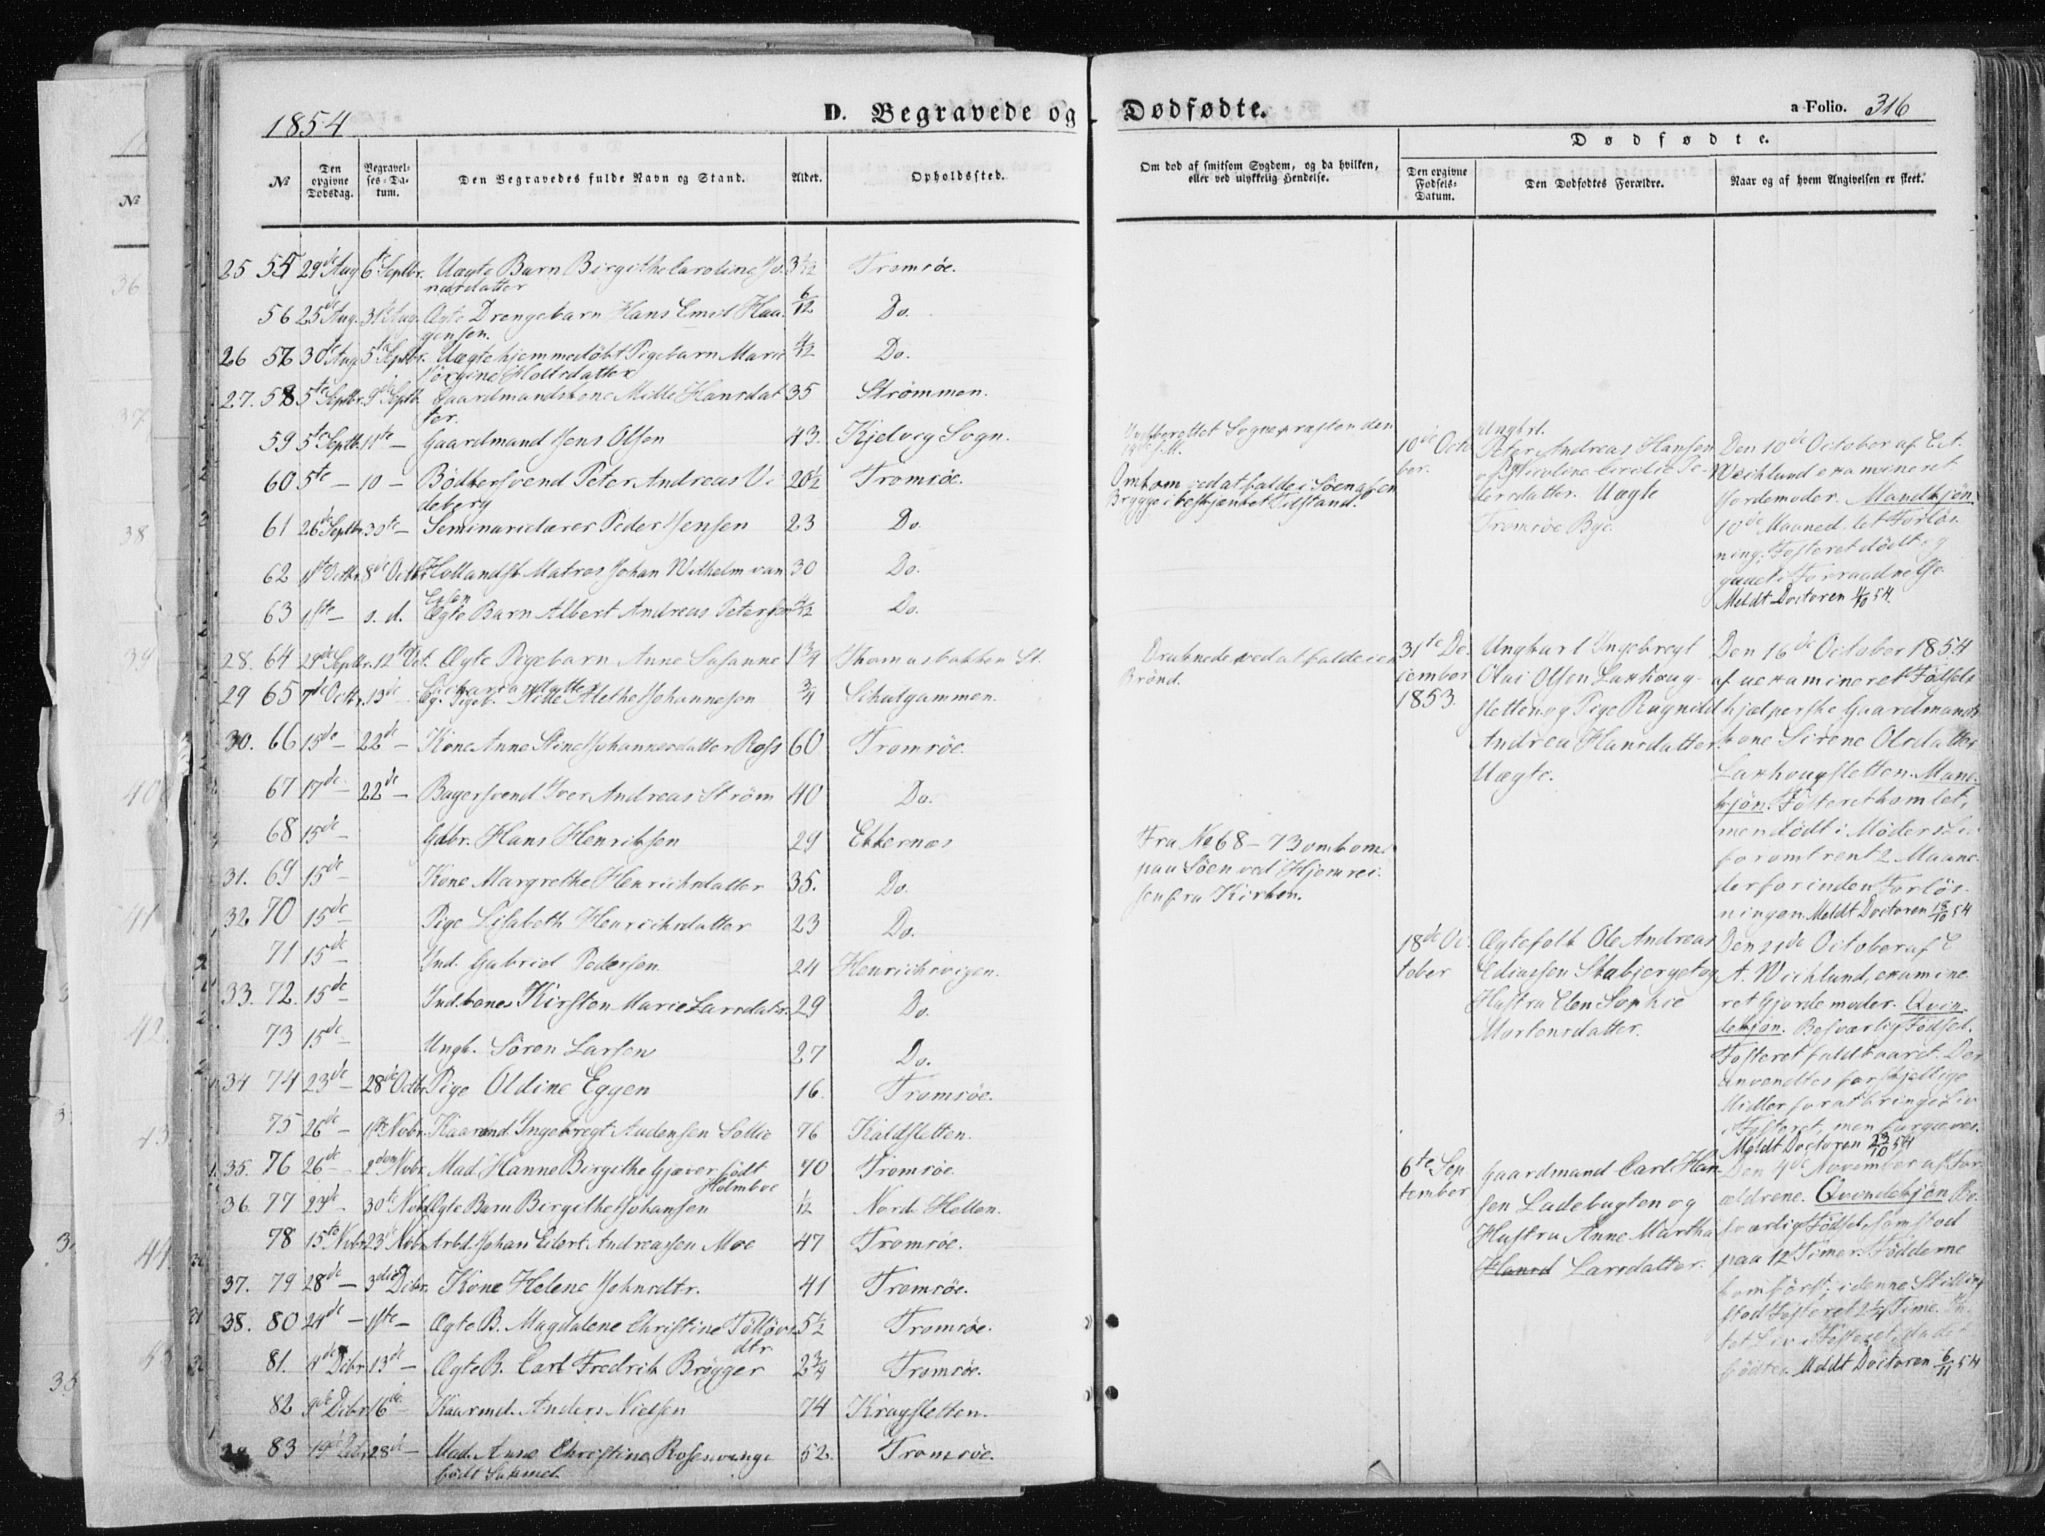 1854
D. Begravede og Dødfødte.
a Folio. 316
Dødfødte.
№
Den opgivne Dødsdag.
Begravelses-Datum.
Den Begravedes fulde Navn og Stand.
Alder.
Opholdssted.
Om død af smitsom Sygdom, og da hvilken, eller ved ulykkelig Hendelse.
Den opgivne Fødsels-Datum.
Den Dødfødtes Forældre.
Naar og af hvem Angivelsen er skeet.
25 55 29de Aug 6te Septbr. Uægte Barn Birgithe Caroline
nærdatter 3 1/12 Tromsøe.
56 25de Aug. 31te Aug. Ægte Drengebarn Hans Emil Haa-
gensen. 6/12 Do.
26 57 30te Aug 5te Septbr. Uægte hjemmedøbt Pigebarn Marie
Jørgine Holtsdatter 4/12 Do.
27. 58 5te Septbr. 9de Septb. Gaardmandskone Mille Hansdat-
ter. 35 Strømmen.
59 5te Septb. 11te — Gaardmand Jens Olsen 43. Kjelvig Sogn.
60 5te — 10 — Bødkersvend Peter Andreas Vi-
deberg 20½ Tromsøe.
61 26de Septbr. 30te — Seminarielærer Peder Jensen 23 Do.
62 1ste Octbr. 8de Octbr. Hollandsk Matros Johan Wilhelm van
Essen 30 Do.
63 1ste — s. d. Ægte Barn Albert Andreas Petersen 4/12 Do.
28. 64 29de Septbr. 12te Oct. Ægte Pigebarn Anne Susanne
Zachariasdatter 1¾ Thomasbakken St.
29 65 7de Octbr. 13de Eg. Pigeb. Nille Klethe Johannesen ¾ Schulgammen.
30. 66 15de — 22de — Kone Anne Stine Johannesdatter Ross 60 Tromsøe.
67 17de — 22de — Bagersvend Iver Andreas Strøm 40 Do.
68 15de Gdbr. Hans Henriksen 29 Ekkernæs
31. 69 15de Kone Margrethe Henrichsdatter 35. Do.
32. 70 15de Pige Lisabeth Henrichsdatter 23 Do.
71 15de Ind. Gabriel Pedersen 24 Henrichsvigen.
33. 72. 15de Ind.kones Kirsten Marie Larsdatr. 29 Do.
73 15de Ungk. Søren Larsen 27 Do.
34 74 23de — 28de Octbr. Pige Oldine Eggen 16. Tromsøe.
75 26de — 1ste Novbr. Kaarmd Ingebregt Audensen Sollie 76 Kaldsletten.
35. 76 26de — 2den Novbr. Mad. Hanne Birgithe Gjæver født
Holmboe 70 Tromsøe
36. 77 23de — 30te Novbr. Ægte Barn Birgithe Johansen 1/12 Nord. Hellen.
78 15te Novbr. 23de Novbr. Arbd. Johan Eilert Andreassen Moe 47 Tromsøe.
37. 79 28de — 3die Dcbr. Kone Helene Johnsdtr. 41 Tromsøe.
38. 80 24de — 1ste — Ægte B. Magdalene Christine Tølløvs
dtr 5½ Tromsøe.
81. 4de Dcbr. 13de — Ægte B. Carl Fredrik Brøgger 2¾ Tromsøe.
82 9de Dcbr. 16de — Kaarmd. Anders Nielsen 74 Kragsletten.
83 19de Dcbr. 28de — Mad. Anne Christine Rosenvinge
født Sommel. 52. Tromsøe.
Sognepræsten den
Omkom ved at falde i Søen af en
Brygge i beskjænket Tilstand.
Druknede ved at falde i en
Brønd.
Fra No 68 – 73 omkom
paa Søen ved Hjemrei-
sen fra Kirken.
10de Octo-
ber.
Ungkrl.
Peter Andreas Hansen
og Pige Nicoline Cecilie Pe-
dersdatter. Uægte
Tromsøe Bye.
Den 10de October af Ect.
Wichlund examineret
Jordemoder. Mandkjøn
10de Maaned let Forløs-
ning; Fosteret dødt og
gaaet i Forraadnelse.
Meldt Doctoren 11/10 54.
31te De-
cember
1853.
Ungkarl Ingebregt
Olai Olsen Laxhoug-
sletten og Pige Ragnild
Andrea Hansdatter
Uægte.
Den 16de October 1854
af uexamineret Fødsels-
hjælperske Gaardmands-
kone Sirene Olsdatter
Laxhougsletten. Mand-
kjøn. Fosteret kom let,
men dødt i Moders Liv
for omtrent 2 Maane-
der forinden Forløs-
ningen. Meldt Doctoren 18/10 54
18de Oc-
tober
Ægtefolk Ole Andreas
Ediassen Stabjerget og
Hustru Elen Sophie
Mortensdatter.
Den 21de October af E
A. Wichlund, examine-
ret Gjordemoder. Qvin-
dekjøn. Besværlig Fødsel.
Fosteret fuldbaaret. Der
anvendtes forskjellige
Midler for at bringe Liv
i Fosteret, men forgjæves.
Meldt Doctoren 23/10 54
6te Sep-
tember
Gaardmand Carl Han-
sen Ladebugten og
Hustru Anne Martha
Hansd Larsdatter.
Den 4de November af For-
ældrene. Qvindekjøn Be-
sværlig Fødsel, som stod
paa 12 Timer. Fødderne
kom først; i denne Stilling
stod Fosteret 2¼ Time. In-
tet Liv i Fosteret, da det
fødtes. Meldt Doctoren 6/11 54